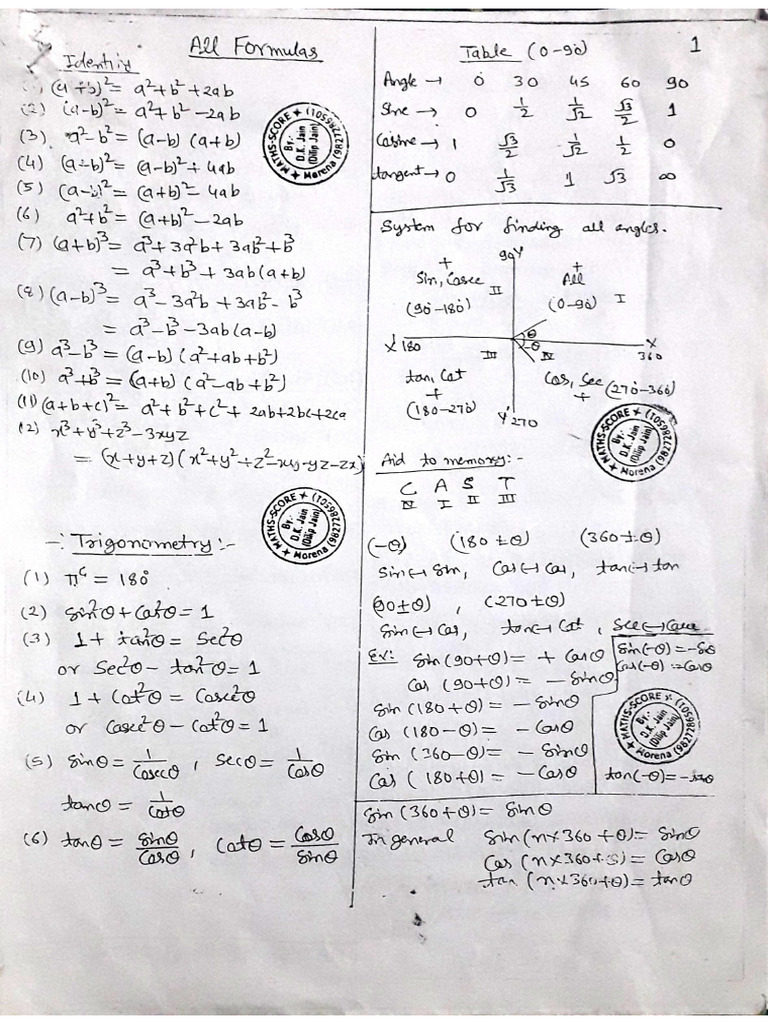 All Formulas
Identity
(1) (a+b)² = a²+b²+2ab
(2) (a-b)² = a²+b²-2ab
(3) a²-b² = (a-b) (a+b)
(4) (a+b)² = (a-b)²+4ab
(5) (a-b)² = (a+b)²-4ab
(6) a²+b² = (a+b)²-2ab
(7) (a+b)³ = a³+3a²b+3ab²+b³
= a³+b³+3ab(a+b)
(8) (a-b)³ = a³-3a²b+3ab²-b³
= a³-b³-3ab(a-b)
(9) a³-b³ = (a-b) (a²+ab+b²)
(10) a³+b³ = (a+b) (a²-ab+b²)
(11) (a+b+c)² = a²+b²+c²+2ab+2bc+2ca
(12) x³+y³+z³-3xyz
= (x+y+z) (x²+y²+z²-xy-yz-zx)
MATHS-SCORE
By:-
D.K. Jain
(Dilip Jain)
Morena
-: Trigonometry:-
(1) πᶜ = 180°
(2) Sin²θ+Cos²θ = 1
(3) 1+tan²θ = Sec²θ
or Sec²θ-tan²θ = 1
(4) 1+Cot²θ = Cosec²θ
or Cosec²θ-Cot²θ = 1
(5) Sinθ = 1/Cosecθ , Secθ = 1/Cosθ
tanθ = 1/Cotθ
(6) tanθ = Sinθ/Cosθ , Cotθ = Cosθ/Sinθ
MATHS-SCORE
By:-
D.K. Jain
(Dilip Jain)
Morena
Table (0-90) 1
Angle → 0 30 45 60 90
Sine → 0 1/2 1/√2 √3/2 1
Cosine → 1 √3/2 1/√2 1/2 0
tangent → 0 1/√3 1 √3 ∞
System for finding all angles.
90 Y
+ +
Sin, Cosec II All
(90-180) (0-90) I
θ
X' 180 -θ X
III IV 360
tan, Cot Cos, Sec (270-360)
+ +
(180-270)
Y' 270
MATHS-SCORE
By:-
D.K. Jain
(Dilip Jain)
Morena
Aid to memory:-
C A S T
IV I II III
(-θ) (180±θ) (360±θ)
Sin↔Sin, Cos↔Cos, tan↔tan
(90±θ) , (270±θ)
Sin↔Cos, tan↔Cot, Sec↔Cosec
Ex: Sin(90+θ) = +Cosθ
Cos (90+θ) = -Sinθ
Sin (180+θ) = -Sinθ
Cos (180-θ) = -Cosθ
Sin (360-θ) = -Sinθ
Cos (180+θ) = -Cosθ
Sin(-θ) = -Sθ
Cos(-θ) = Cosθ
MATHS-SCORE
By:-
D.K. Jain
(Dilip Jain)
Morena
Sin (360+θ) = Sinθ
In general Sin(n×360+θ) = Sinθ
Cos (n×360+θ) = Cosθ
tan (n×360+θ) = tanθ